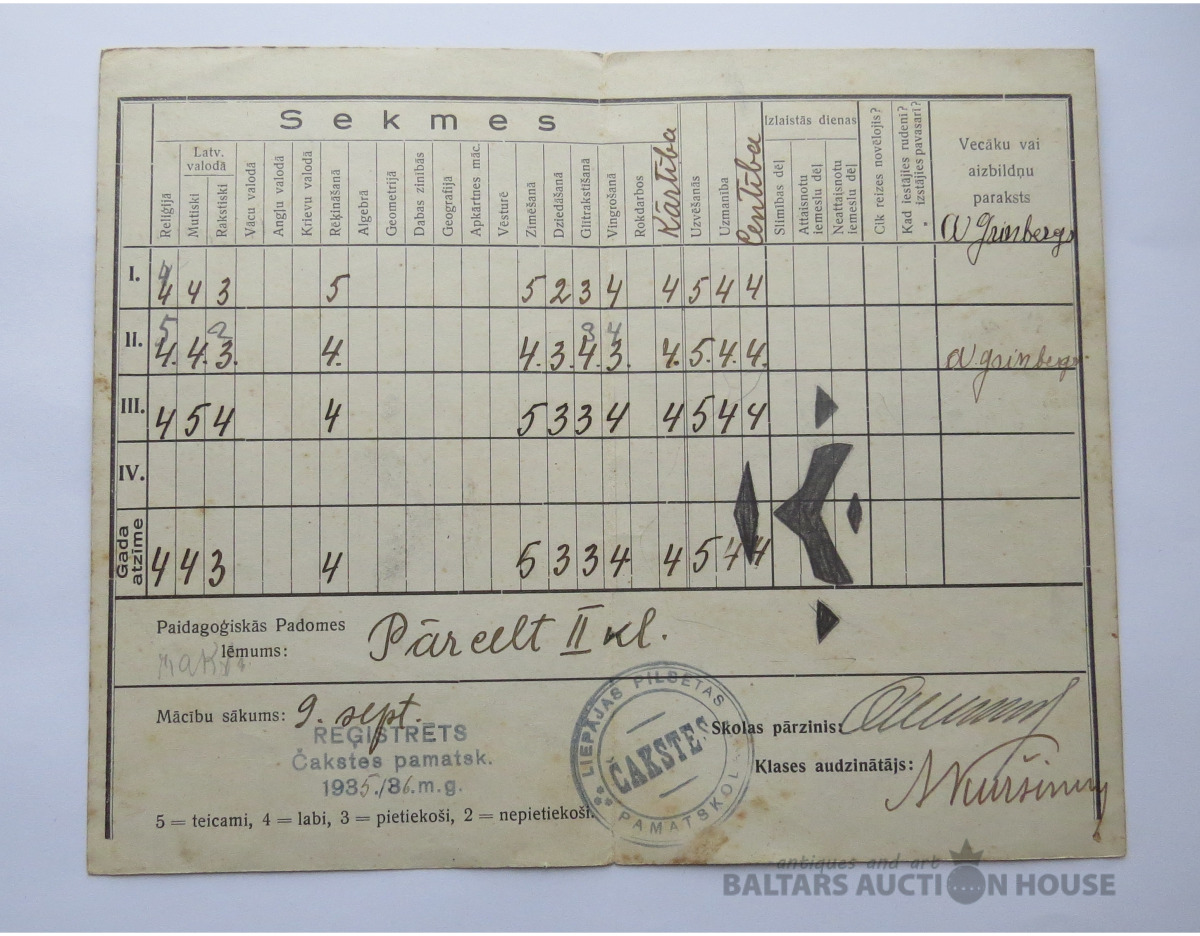 Sekmes
Reliģijā
Latv. valodā
Mutiski
Rakstiski
Vācu valodā
Angļu valodā
Krievu valodā
Rēķināšanā
Algebrā
Ģeometrijā
Dabas zinībās
Ģeografijā
Apkārtnes māc.
Vēsturē
Zīmēšanā
Dziedāšanā
Glītrakstīšanā
Vingrošanā
Rokdarbos
Kārtība
Uzvēšanās
Uzmanība
Centība
Izlaistās dienas
Slimības dēļ
Attaisnotu iemeslu dēļ
Neattaisnotu iemeslu dēļ
Cik reizes novēlojis?
Kad iestājies rudenī?
izstājies pavasarī?
Vecāku vai
aizbildņu
paraksts
A Grinbergs
4
I. 4 4 3 5 5 2 3 4 4 5 4 4
5 2 3 4
II. 4. 4. 3. 4. 4. 3. 4. 3. 4. 5. 4. 4. A. grinbergs
III. 4 5 4 4 5 3 3 4 4 5 4 4
IV.
Gada atzīme 4 4 3 4 5 3 3 4 4 5 4 4
Paidagoģiskās Padomes
lēmums: Pārcelt II kl.
Mācību sākums: 9. sept.
REĢISTRĒTS
Čakstes pamatsk.
1935./36.m.g.
LIEPĀJAS PILSĒTAS
ČAKSTES
PAMATSKOLA
Skolas pārzinis:
Klases audzinātājs:
5 = teicami, 4 = labi, 3 = pietiekoši, 2 = nepietiekoši.
antiques and art
BALTARS AUCTION HOUSE